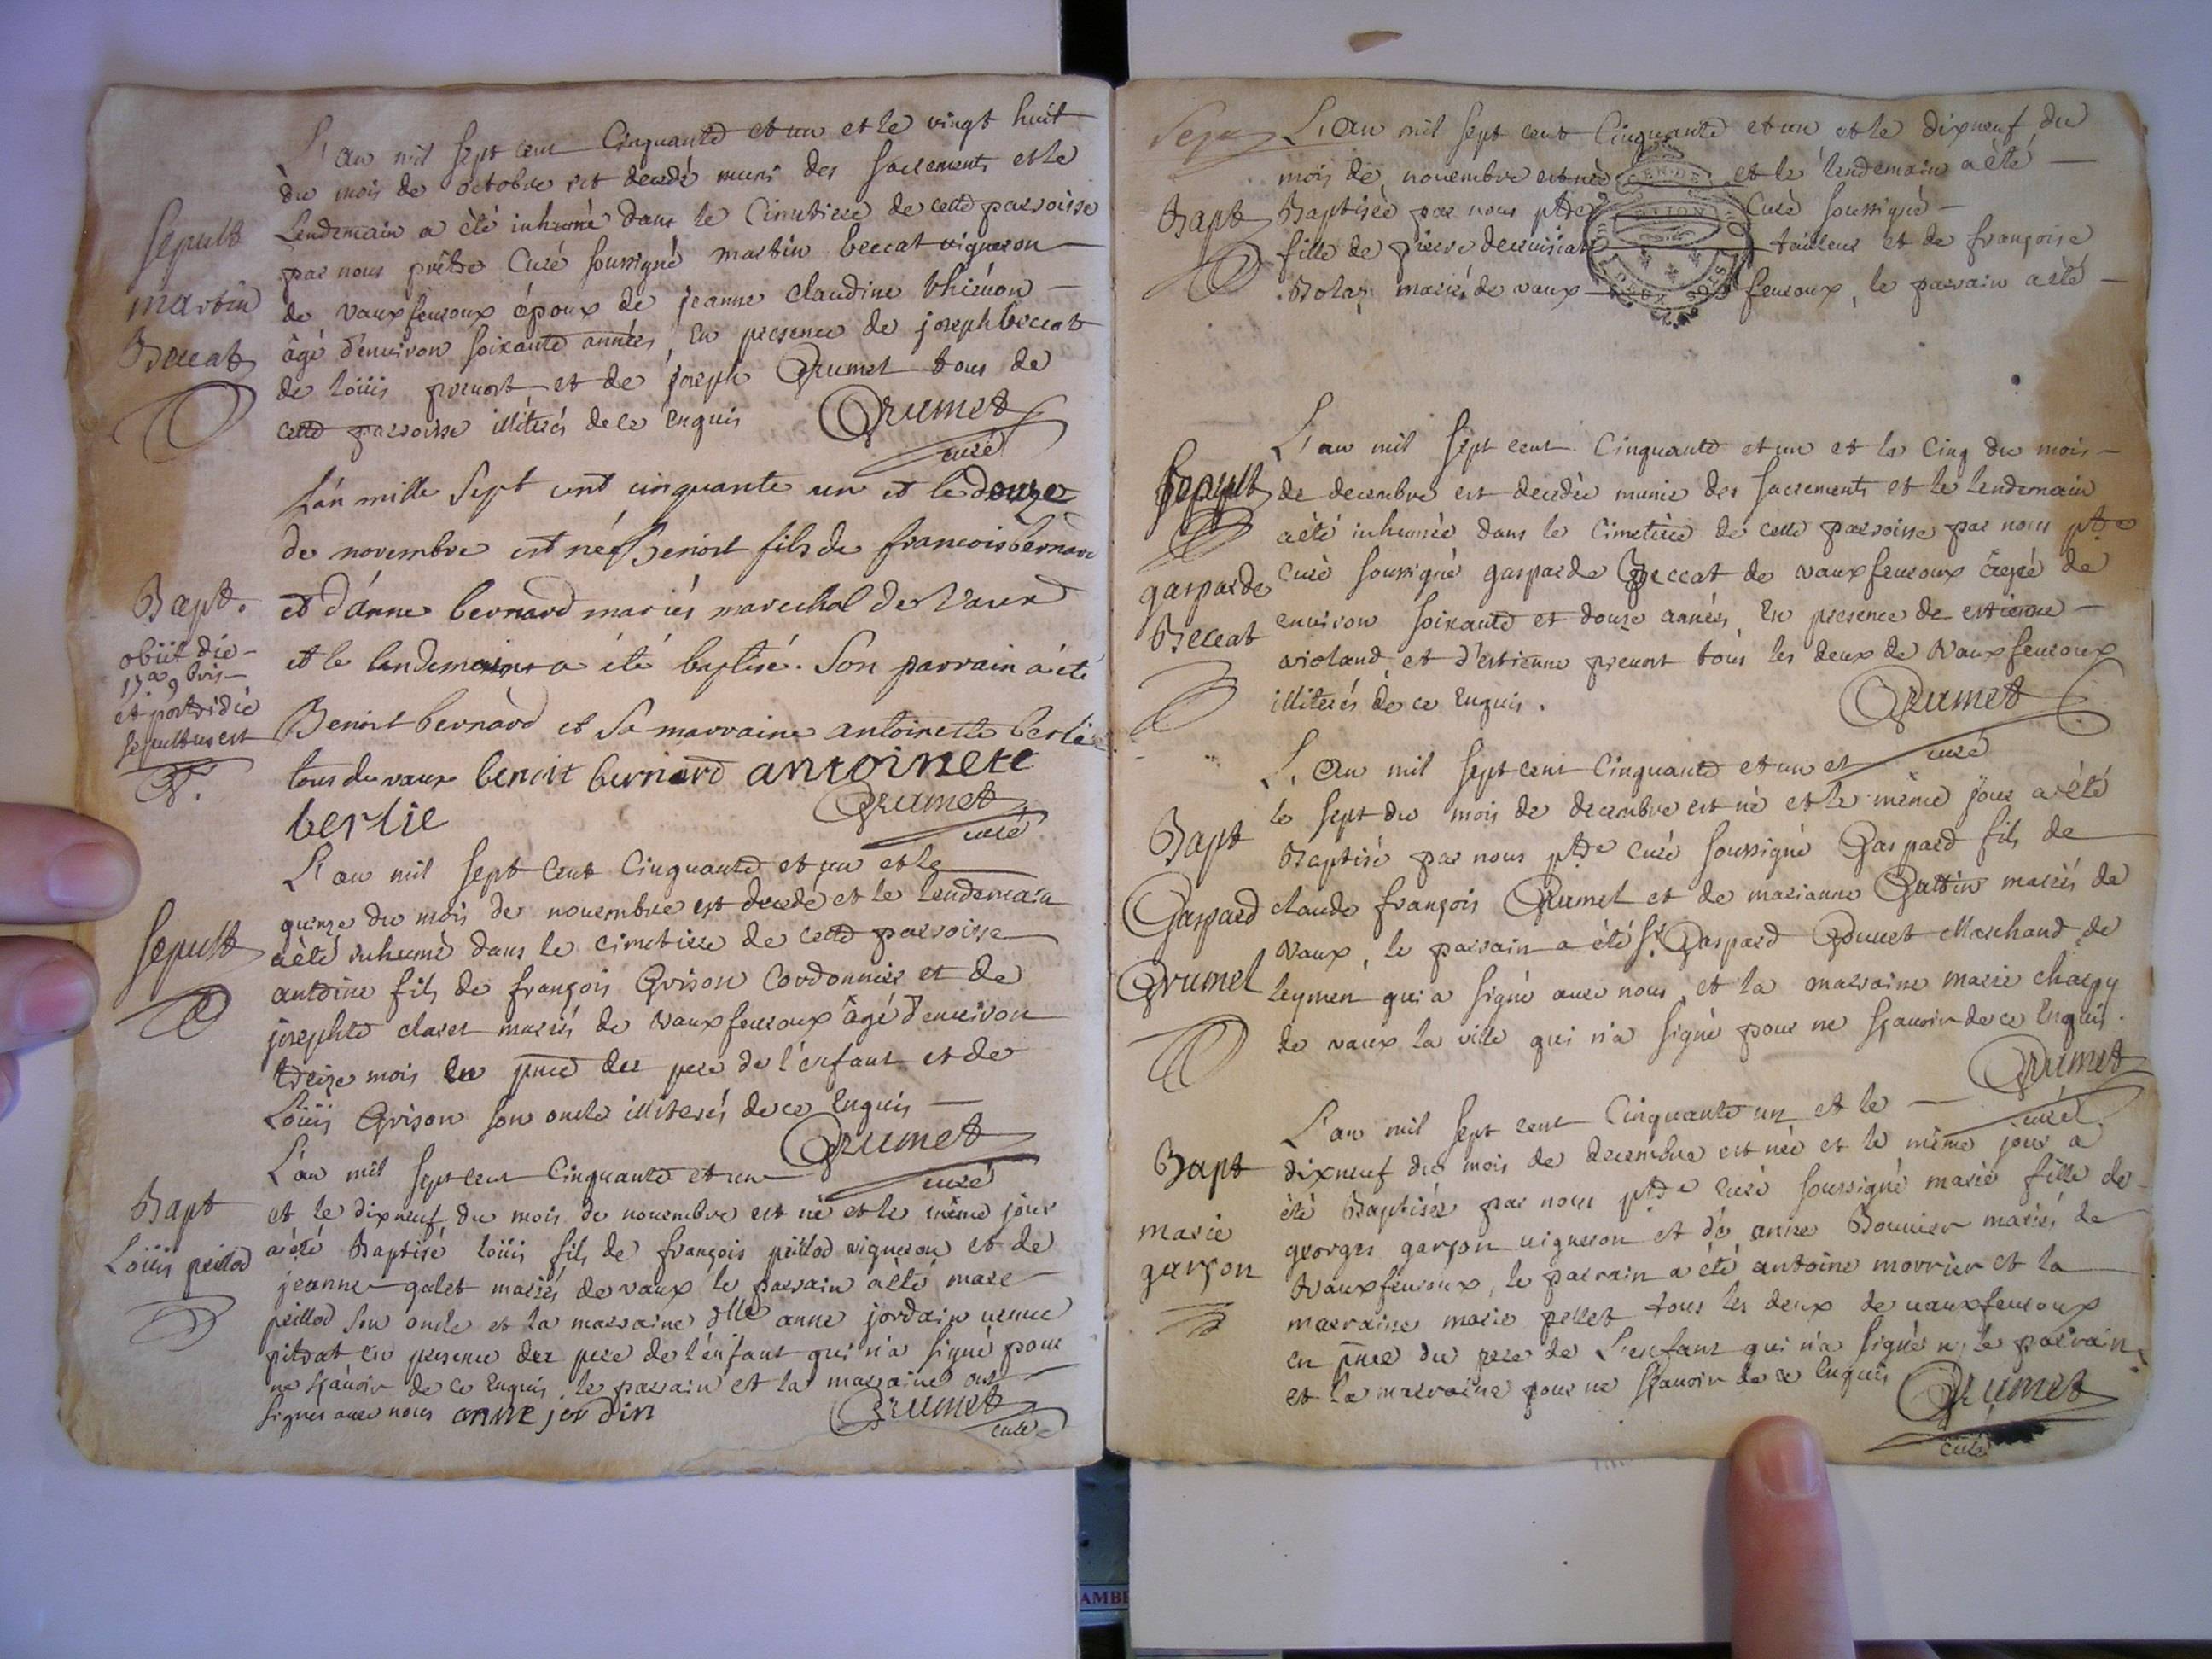 L'an mil sept cent Cinquante et un et le vingt huit
du mois de octobre est decedé muni des sacrements et le
Sepult
Lendemain a èté inhumé dans le Cimetiere de cette parroisse
par nous prêtre Curé soussigné martin beccat vigneron
martin
de vauxfevroux époux de jeanne claudine thievon
Beccat
âgé d'environ soixante années, en presence de joseph beccat
de loüis prevost et de joseph Grumet tous de
cette parroisse illiterés de ce enquis Grumet
curé
L'an mille sept cent cinquante un et le douze
de novembre est né Benoit fils de francois bernard
Bapt.
et d'anne bernard mariés marechal de Vaux
obiit die
17a 9bris
et le lendemain a été baptisé. Son parrain a été
et postridie
sepultus est
Benoit bernard et Sa marraine antoinette berlie
tous de vaux benoit bernard antoinete
berlie Grumet
curé
L'an mil sept Cent Cinquante et un et le
quinze du mois de novembre est decedé et le lendemain
Sepult
a èté inhumé dans le cimetiere de cette parroisse
antoine fils de françois Grison Cordonnier et de
josephte claret mariés de vauxfevroux âgé d'environ
treize mois en pnce du pere de l'enfant et de
Loüis Grison son oncle illiterés de ce enquis
Grumet
curé
L'an mil sept cent Cinquante et un
Bapt
et le dixneuf du mois de novembre est né et le même jour
Loüis peillod
a èté Baptisé loüis fils de françois peillod vigneron et de
jeanne galet mariés de vaux le parrain a èté marc
peillod son oncle et la marraine dlle anne jordain veuve
pitrat en presence du pere de l'enfant qui n'a signé pour
ne sçavoir de ce enquis. le parrain et la marraine ont
signés avec nous anne jordin Grumet
curé
Sepu L'an mil sept cent Cinquante et un et le dixneuf du
mois de novembre est née et le lendemain a èté
Bapt
Baptisée par nous ptre Curé soussigné
fille de pierre tailleur et de françoise
mariés de vaux fevroux, le parrain a èté
L'an mil sept cent Cinquante et un et le Cinq du mois
Sepult
de decembre est decedée munie des sacrements et le lendemain
a èté inhumée dans le Cimetiere de cette parroisse par nous ptre
gasparde
curé soussigné gasparde Beccat de vauxfevroux âgée de
Beccat
environ soixante et douze années, en presence de estienne
violand et d'estienne prevost tous les deux de vauxfevroux
illiterés de ce enquis. Grumet
curé
L'an mil sept cent Cinquante et un et
le sept du mois de decembre est né et le même jour a èté
Bapt
Baptisé par nous ptre curé soussigné Gaspard fils de
Gaspard
claude françois Grumet et de marianne mariés de
vaux, le parrain a èté sr Gaspard Marchand de
Grumel
leymen qui a signé avec nous et la marraine marie charpy
de vaux la ville qui n'a signé pour ne sçavoir de ce enquis.
Grumet
curé
L'an mil sept cent Cinquante un et le
Bapt
dixneuf du mois de decembre est née et le même jour a
èté Baptisée par nous ptre curé soussigné marie fille de
marie
georges garçon vigneron et de anne Bouvier mariés de
garçon
vauxfevroux, le parrain a èté antoine morrier et la
marraine marie pellet tous les deux de vauxfevroux
en pnce du pere de l'enfant qui n'a signé ni le parrain
et la marraine pour ne sçavoir de ce enquis Grumet
curé